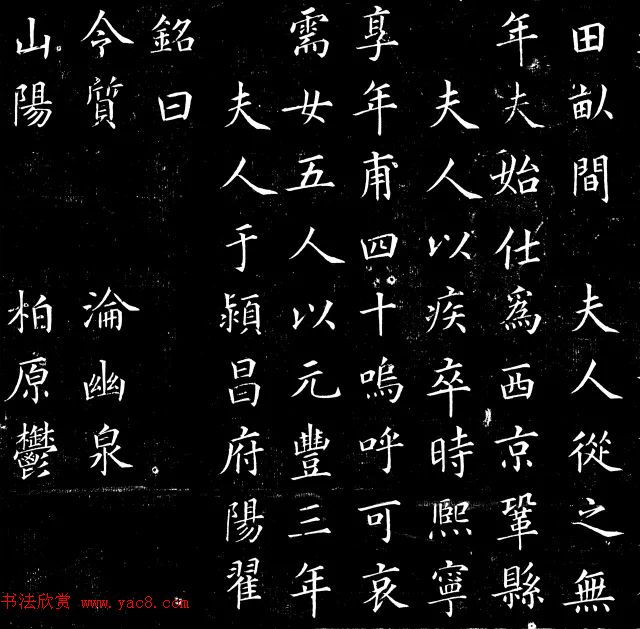 田畝間 夫人從之無
年夫始仕爲西京鞏縣
夫人以疾卒時熙寧
享年甫四十嗚呼可哀
需女五人以元豐三年
夫人于潁昌府陽翟
銘曰
令質 淪幽泉
山陽 柏原鬱
书法欣赏 www.yac8.com